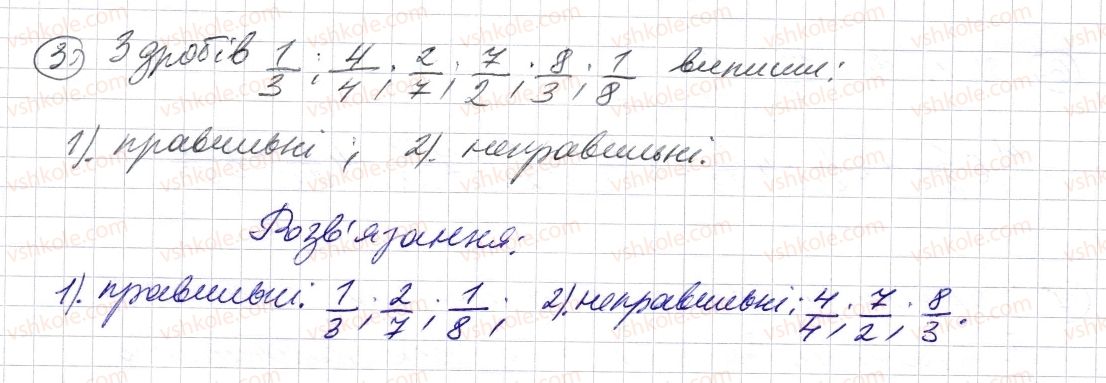 3) З дробів 1/3; 4/4; 2/7; 7/2; 8/3; 1/8 випиши:
1). правильні; 2). неправильні.
Розв'язання:
1). правильні: 1/3; 2/7; 1/8; 2). неправильні: 4/4; 7/2; 8/3.